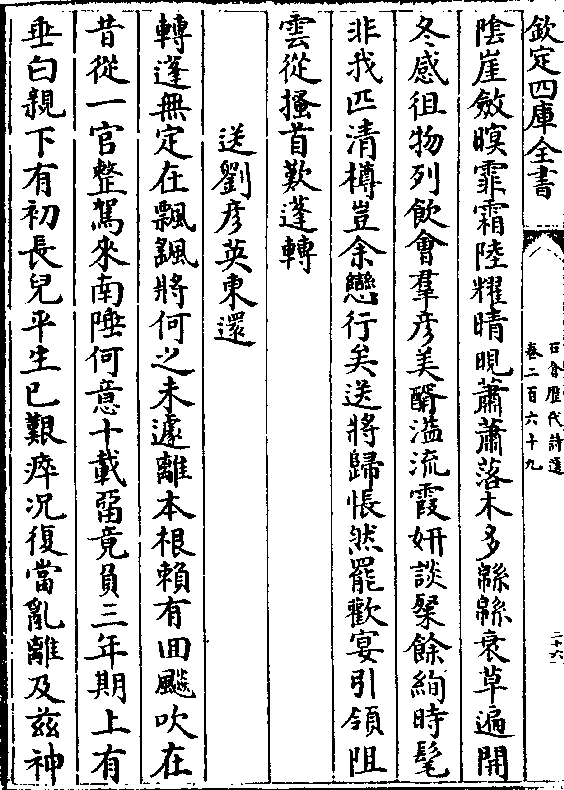 欽定四庫全書
石倉歷代詩選
卷二百六十九
二十六
陰崖斂暝霏霜陸耀晴晛蕭蕭落木多緜緜衰草遍開
冬感徂物列飲會羣彥美醑溢流霞妍談粲餘絢時髦
非我匹清樽豈余戀行矣送將歸悵然罷歡宴引領阻
雲從搔首歎蓬轉
送劉彥英東還
轉蓬無定在飄颻將何之未遽離本根賴有回飈吹在
昔從一官整駕來南陲何意十載留竟負三年期上有
垂白親下有初長兒平生已艱瘁况復當亂離及兹神